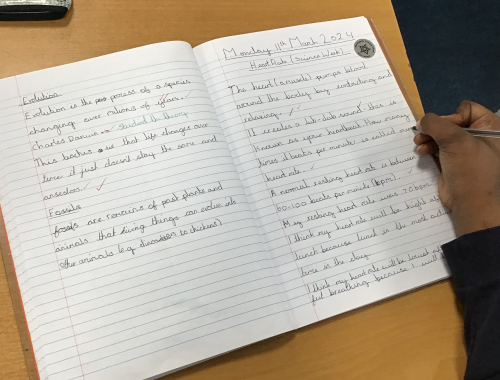 Evolution
Evolution is the process of a species
changing over millions of years.
Charles Darwin studied the theory
This is that life changes over
time it just doesnt stay the same and
Fossils
fossils are remains of past plants and
animals that living things can evolve into
other animals (e.g dinosaurs to chickens)
Monday 11th March 2024
Heart Rate (Science Week)
The heart (a muscle) pumps blood
around the body by contracting and
relaxing.
It creates a lub-dub sound this is
known as your heartbeat. How many
times it beats per minute is called
heart rate.
A normal resting heart rate is between
60-100 beats per minute (bpm).
My resting heart rate was 70 bpm
I think my heart rate will be
lunch because lunch is the most
time in the day.
I think my heart rate will be lowest
breathing because I will